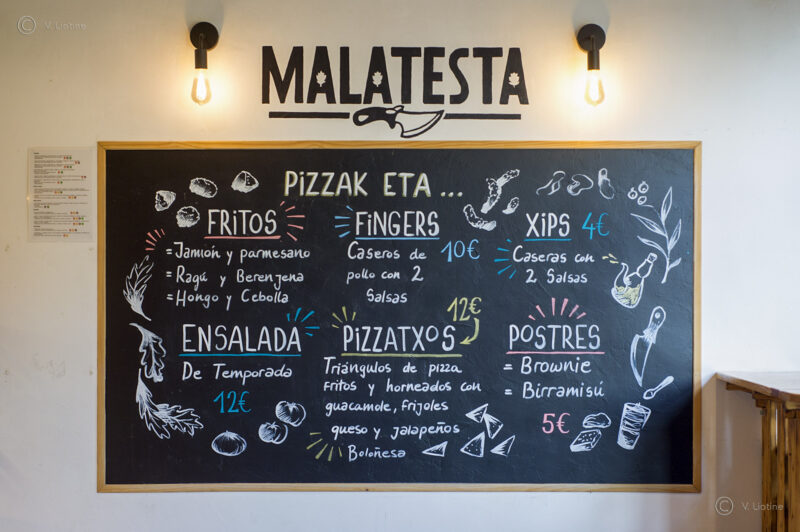 © V. Liotine
MALATESTA
PIZZAK ETA ...
FRITOS
= Jamión y parmesano
= Ragú y Berenjena
= Hongo y Cebolla
FINGERS
10€
Caseros de
pollo con 2
Salsas
XIPS 4€
Caseras con
2 Salsas
ENSALADA
De Temporada
12€
12€
PIZZATXOS
Triángulos de pizza
fritos y horneados con
guacamole, frijoles
queso y jalapeños
Boloñesa
POSTRES
= Brownie
= Birramisú
5€
© V. Liotine